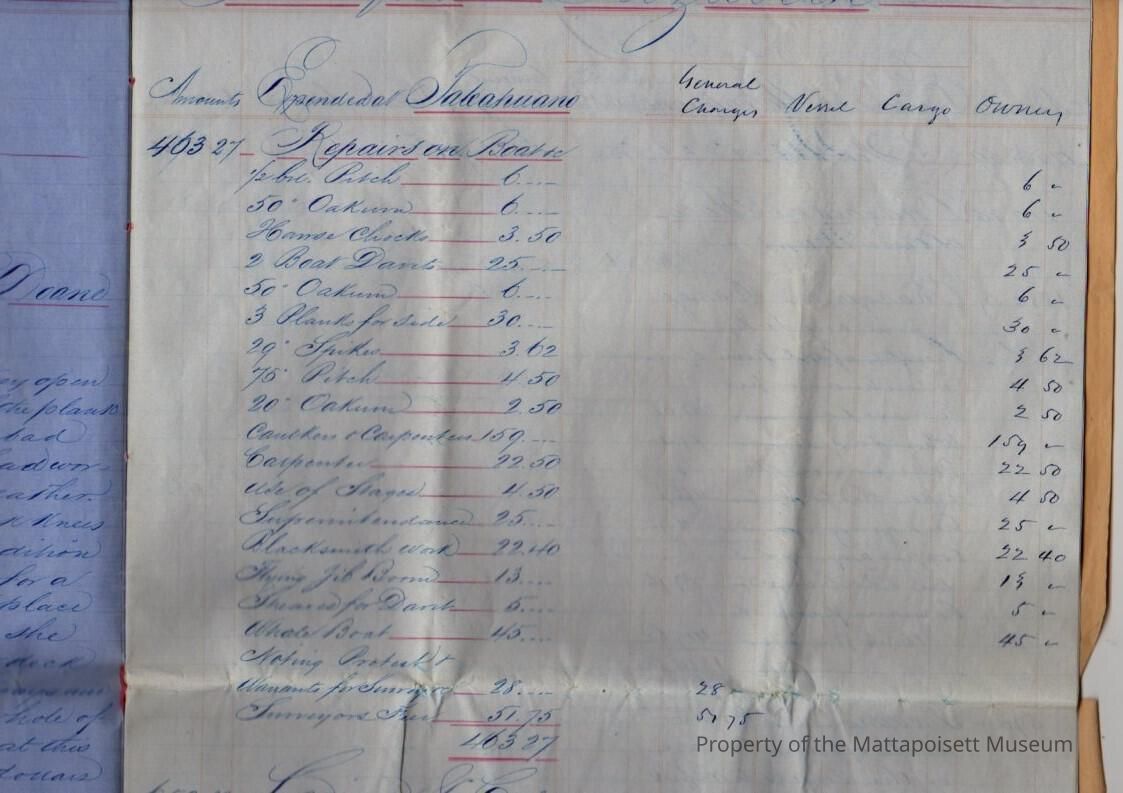 Amounts Expended at Talcahuano General Charges Vessel Cargo Owners
463 27 Repairs on Boat &c
1/2 bbl. Pitch 6.... 6 "
50" Oakum 6.... 6 "
Hawse Chocks 3.50 3 50
2 Boat Davits 25.... 25 "
50" Oakum 6.... 6 "
3 Planks for side 30.... 30 "
29" Spikes 3.62 3 62
75" Pitch 4.50 4 50
20" Oakum 2.50 2 50
Caulkers & Carpenters 159.... 159 "
Carpenter 22.50 22 50
Use of Stages 4.50 4 50
Superintendance 25.... 25 "
Blacksmith work 22.40 22 40
Flying Jib Boom 13.... 13 "
for Davit 5.... 5 "
Whale Boat 45.... 45 "
Noting Protest &
Warrants for Surveyors 28.... 28 "
Surveyors Fees 51.75 51 75
463 27
Doane
open
the planks
had
for a
place
she
deck
hole of
at this
dollars
Property of the Mattapoisett Museum